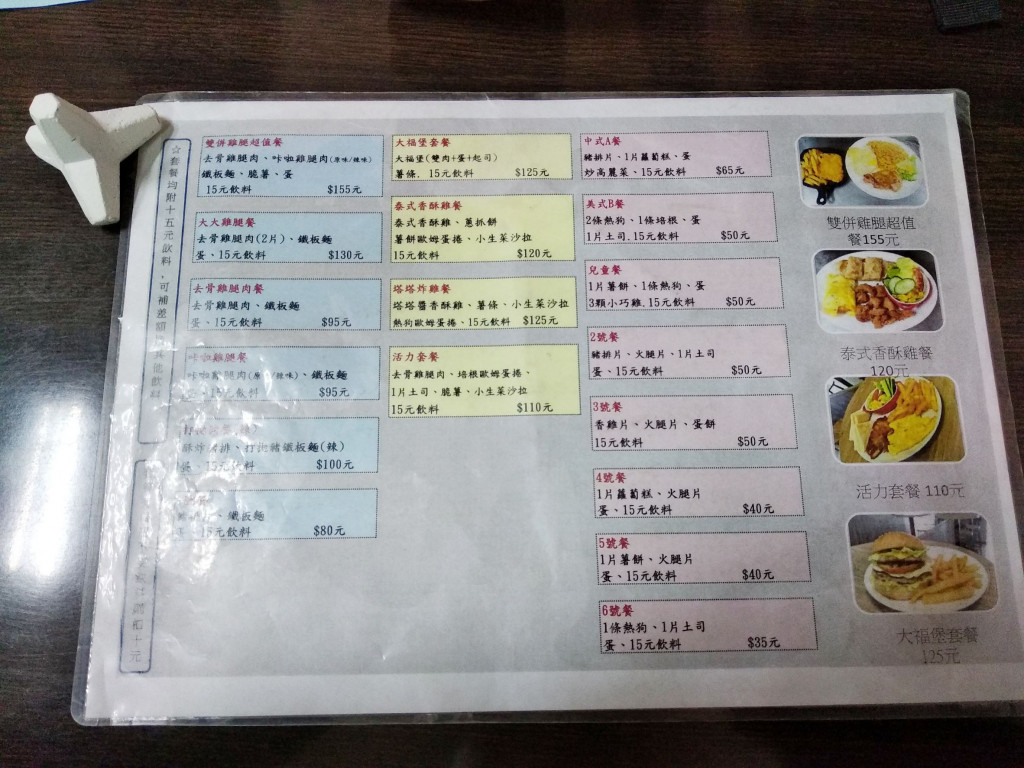 ☆套餐均附十五元飲料，可補差額
雙併雞腿超值餐
去骨雞腿肉、咔啦雞腿肉(原味/辣味)
鐵板麵、脆薯、蛋
15元飲料 $155元
大大雞腿餐
去骨雞腿肉(2片)、鐵板麵
蛋、15元飲料 $130元
去骨雞腿肉餐
去骨雞腿肉、鐵板麵
蛋、15元飲料 $95元
咔啦雞腿餐
咔啦雞腿肉(原味/辣味)、鐵板麵
蛋、15元飲料 $95元
酥炸豬排、打拋豬鐵板麵(辣)
蛋、15元飲料 $100元
鐵板麵
蛋、15元飲料 $80元
大福堡套餐
大福堡(雙肉+蛋+起司)
薯條. 15元飲料 $125元
泰式香酥雞餐
泰式香酥雞、蔥抓餅
薯餅歐姆蛋捲、小生菜沙拉
15元飲料 $120元
塔塔炸雞餐
塔塔醬香酥雞、薯條、小生菜沙拉
熱狗歐姆蛋捲、15元飲料 $125元
活力套餐
去骨雞腿肉、培根歐姆蛋捲、
1片土司、脆薯、小生菜沙拉
15元飲料 $110元
中式A餐
豬排片、1片蘿蔔糕、蛋
炒高麗菜、15元飲料 $65元
美式B餐
2條熱狗、1條培根、蛋
1片土司.15元飲料 $50元
兒童餐
1片薯餅、1條熱狗、蛋
3顆小巧雞.15元飲料 $50元
2號餐
豬排片、火腿片、1片土司
蛋、15元飲料 $50元
3號餐
香雞片、火腿片、蛋餅
15元飲料 $50元
4號餐
1片蘿蔔糕、火腿片
蛋、15元飲料 $40元
5號餐
1片薯餅、火腿片
蛋、15元飲料 $40元
6號餐
1條熱狗、1片土司
蛋、15元飲料 $35元
雙併雞腿超值
餐155元
泰式香酥雞餐
120元
活力套餐 110元
大福堡套餐
125元